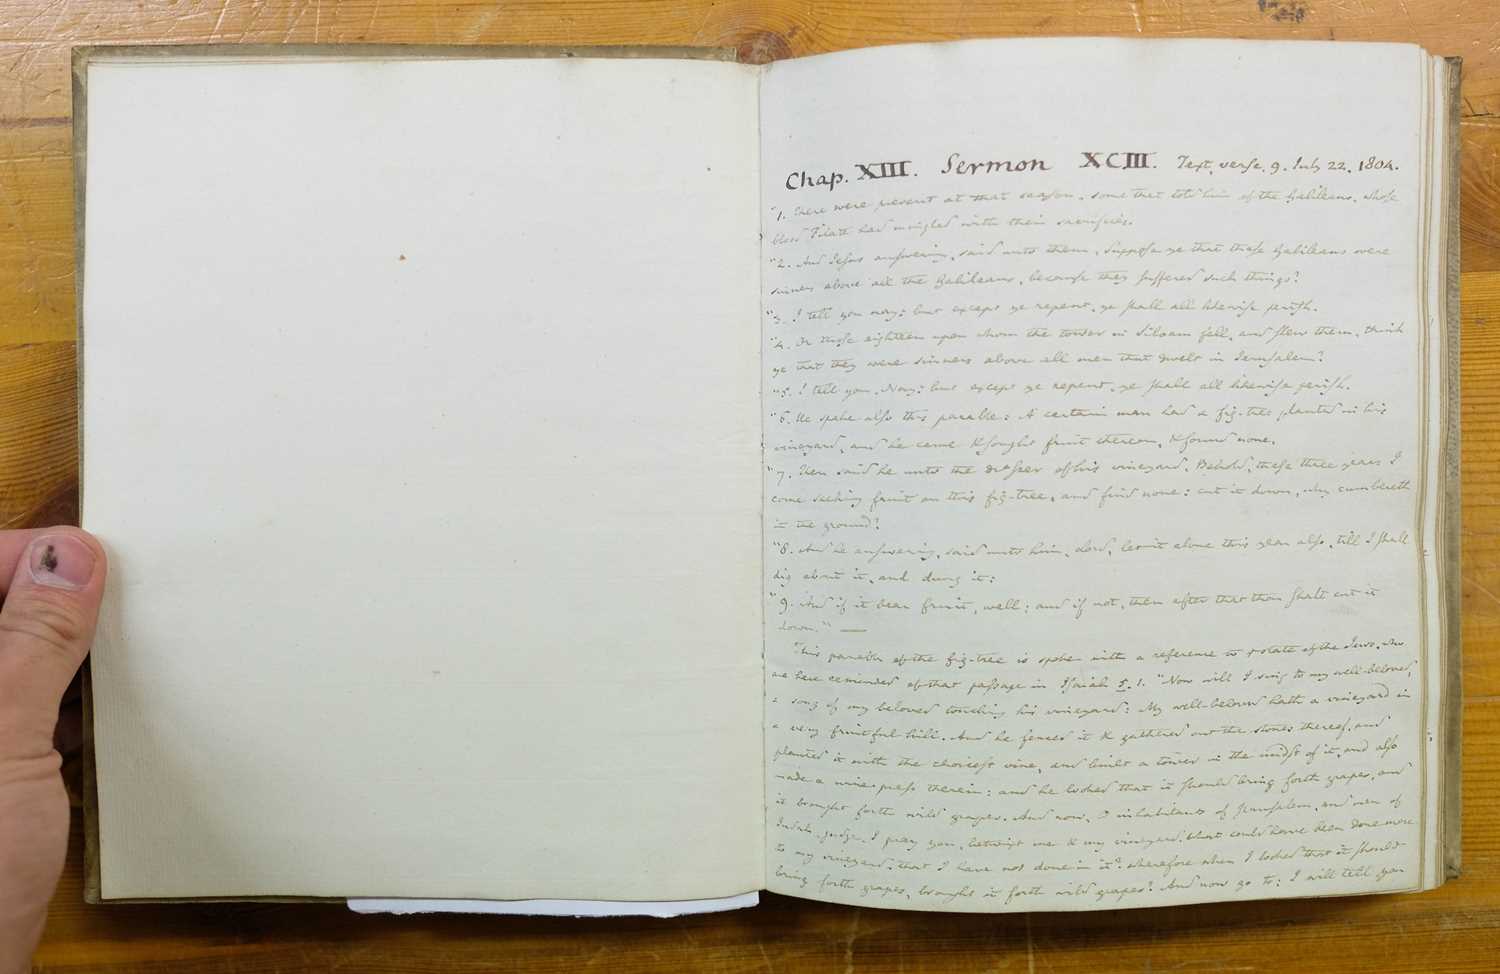 Chap. XIII. Sermon XCIII. Text, verse, 9. July 22. 1804.
"1. There were present at that season, some that told him of the Galileans, whose
blood Pilate had mingled with their sacrifices.
"2. And Jesus answering, said unto them, Suppose ye that these Galileans were
sinners above all the Galileans, because they suffered such things?
"3. I tell you nay: but except ye repent, ye shall all likewise perish.
"4. Or those eighteen upon whom the tower in Siloam fell, and slew them, think
ye that they were sinners above all men that dwelt in Jerusalem?
"5. I tell you, Nay: but except ye repent, ye shall all likewise perish.
"6. He spake also this parable: A certain man had a fig-tree planted in his
vineyard, and he came & sought fruit thereon, & found none.
"7. Then said he unto the dresser of his vineyard, Behold, these three years I
come seeking fruit on this fig-tree, and find none: cut it down, why cumbereth
it the ground?
"8. And he answering, said unto him, Lord, let it alone this year also, till I shall
dig about it, and dung it:
"9. And if it bear fruit, well: and if not, then after that thou shalt cut it
down." —
This parable of the fig-tree is spoken with a reference to ye state of the Jews, who
are here reminded of that passage in Isaiah 5. 1. "Now will I sing to my well-beloved,
a song of my beloved touching his vineyard: My well-beloved hath a vineyard in
a very fruitful hill. And he fenced it & gathered out the stones thereof, and
planted it with the choicest vine, and built a tower in the midst of it, and also
made a wine-press therein: and he looked that it should bring forth grapes, and
it brought forth wild grapes. And now, O inhabitants of Jerusalem, and men of
Judah, judge, I pray you, betwixt me & my vineyard. What could have been done more
to my vineyard, that I have not done in it? wherefore when I looked that it should
bring forth grapes, brought it forth wild grapes? And now go to; I will tell you